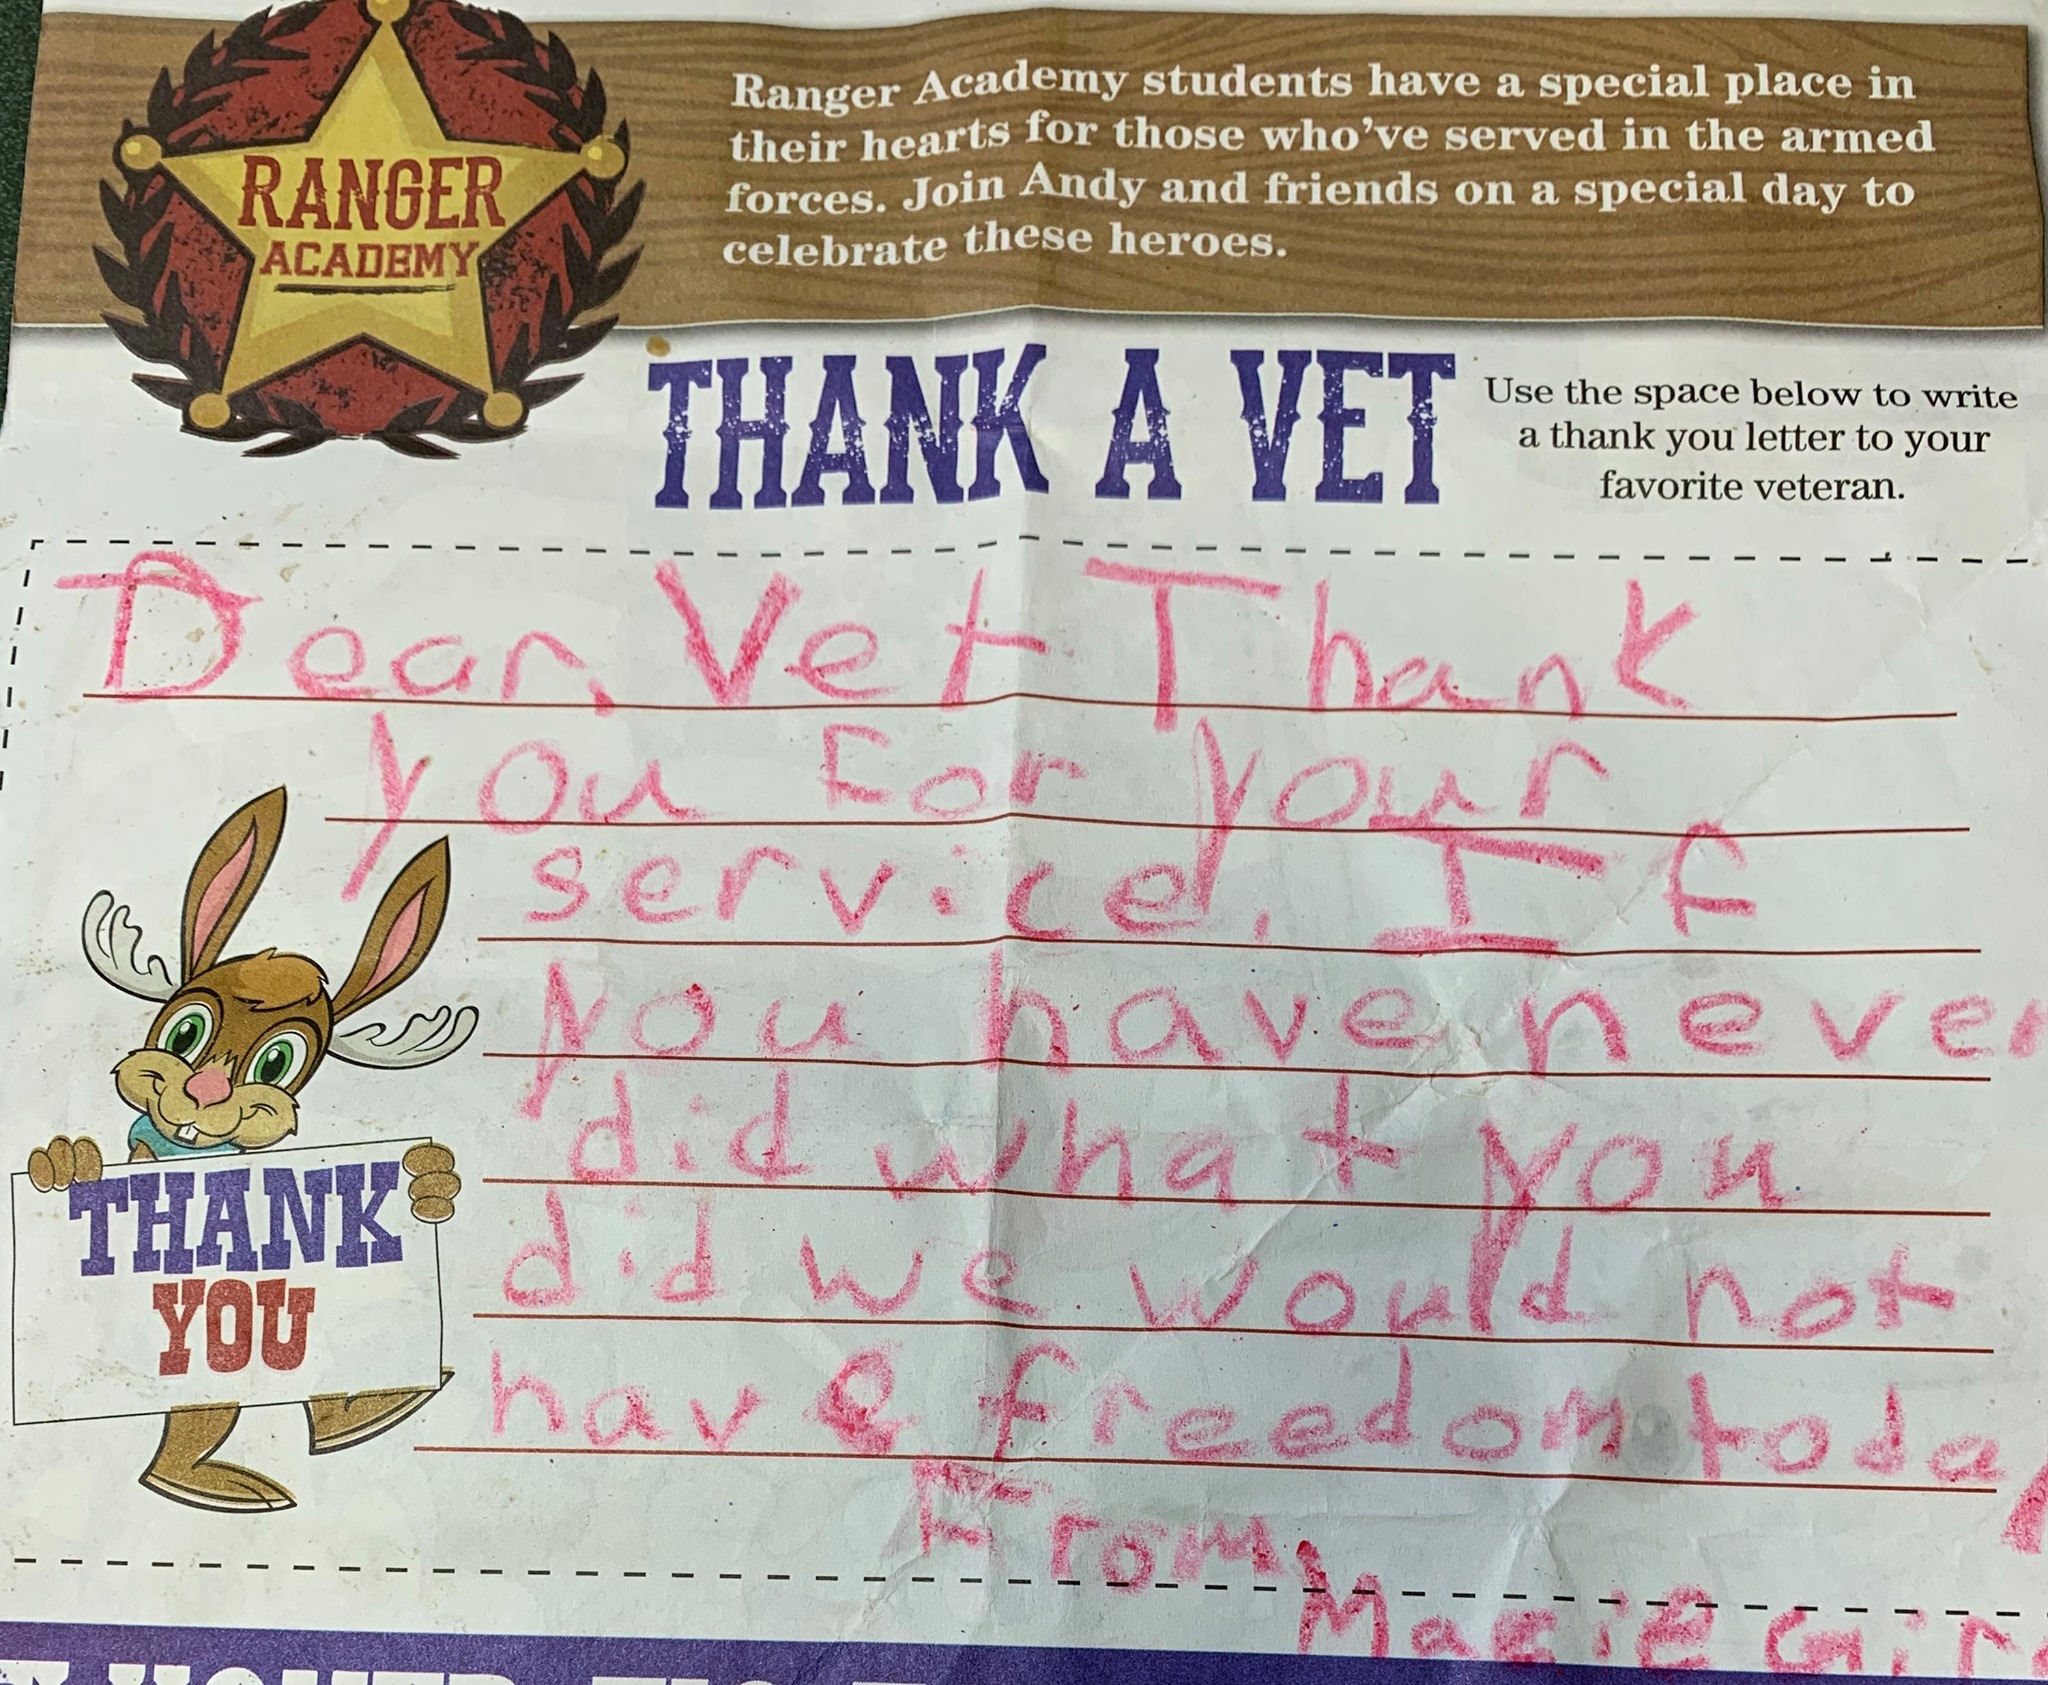 RANGER
ACADEMY
Ranger Academy students have a special place in
their hearts for those who've served in the armed
forces. Join Andy and friends on a special day to
celebrate these heroes.
THANK A VET
Use the space below to write
a thank you letter to your
favorite veteran.
Dear, Vet Thank
you For your
service. If
you have never
did what you
did we would not
have freedom today
From,
THANK
YOU